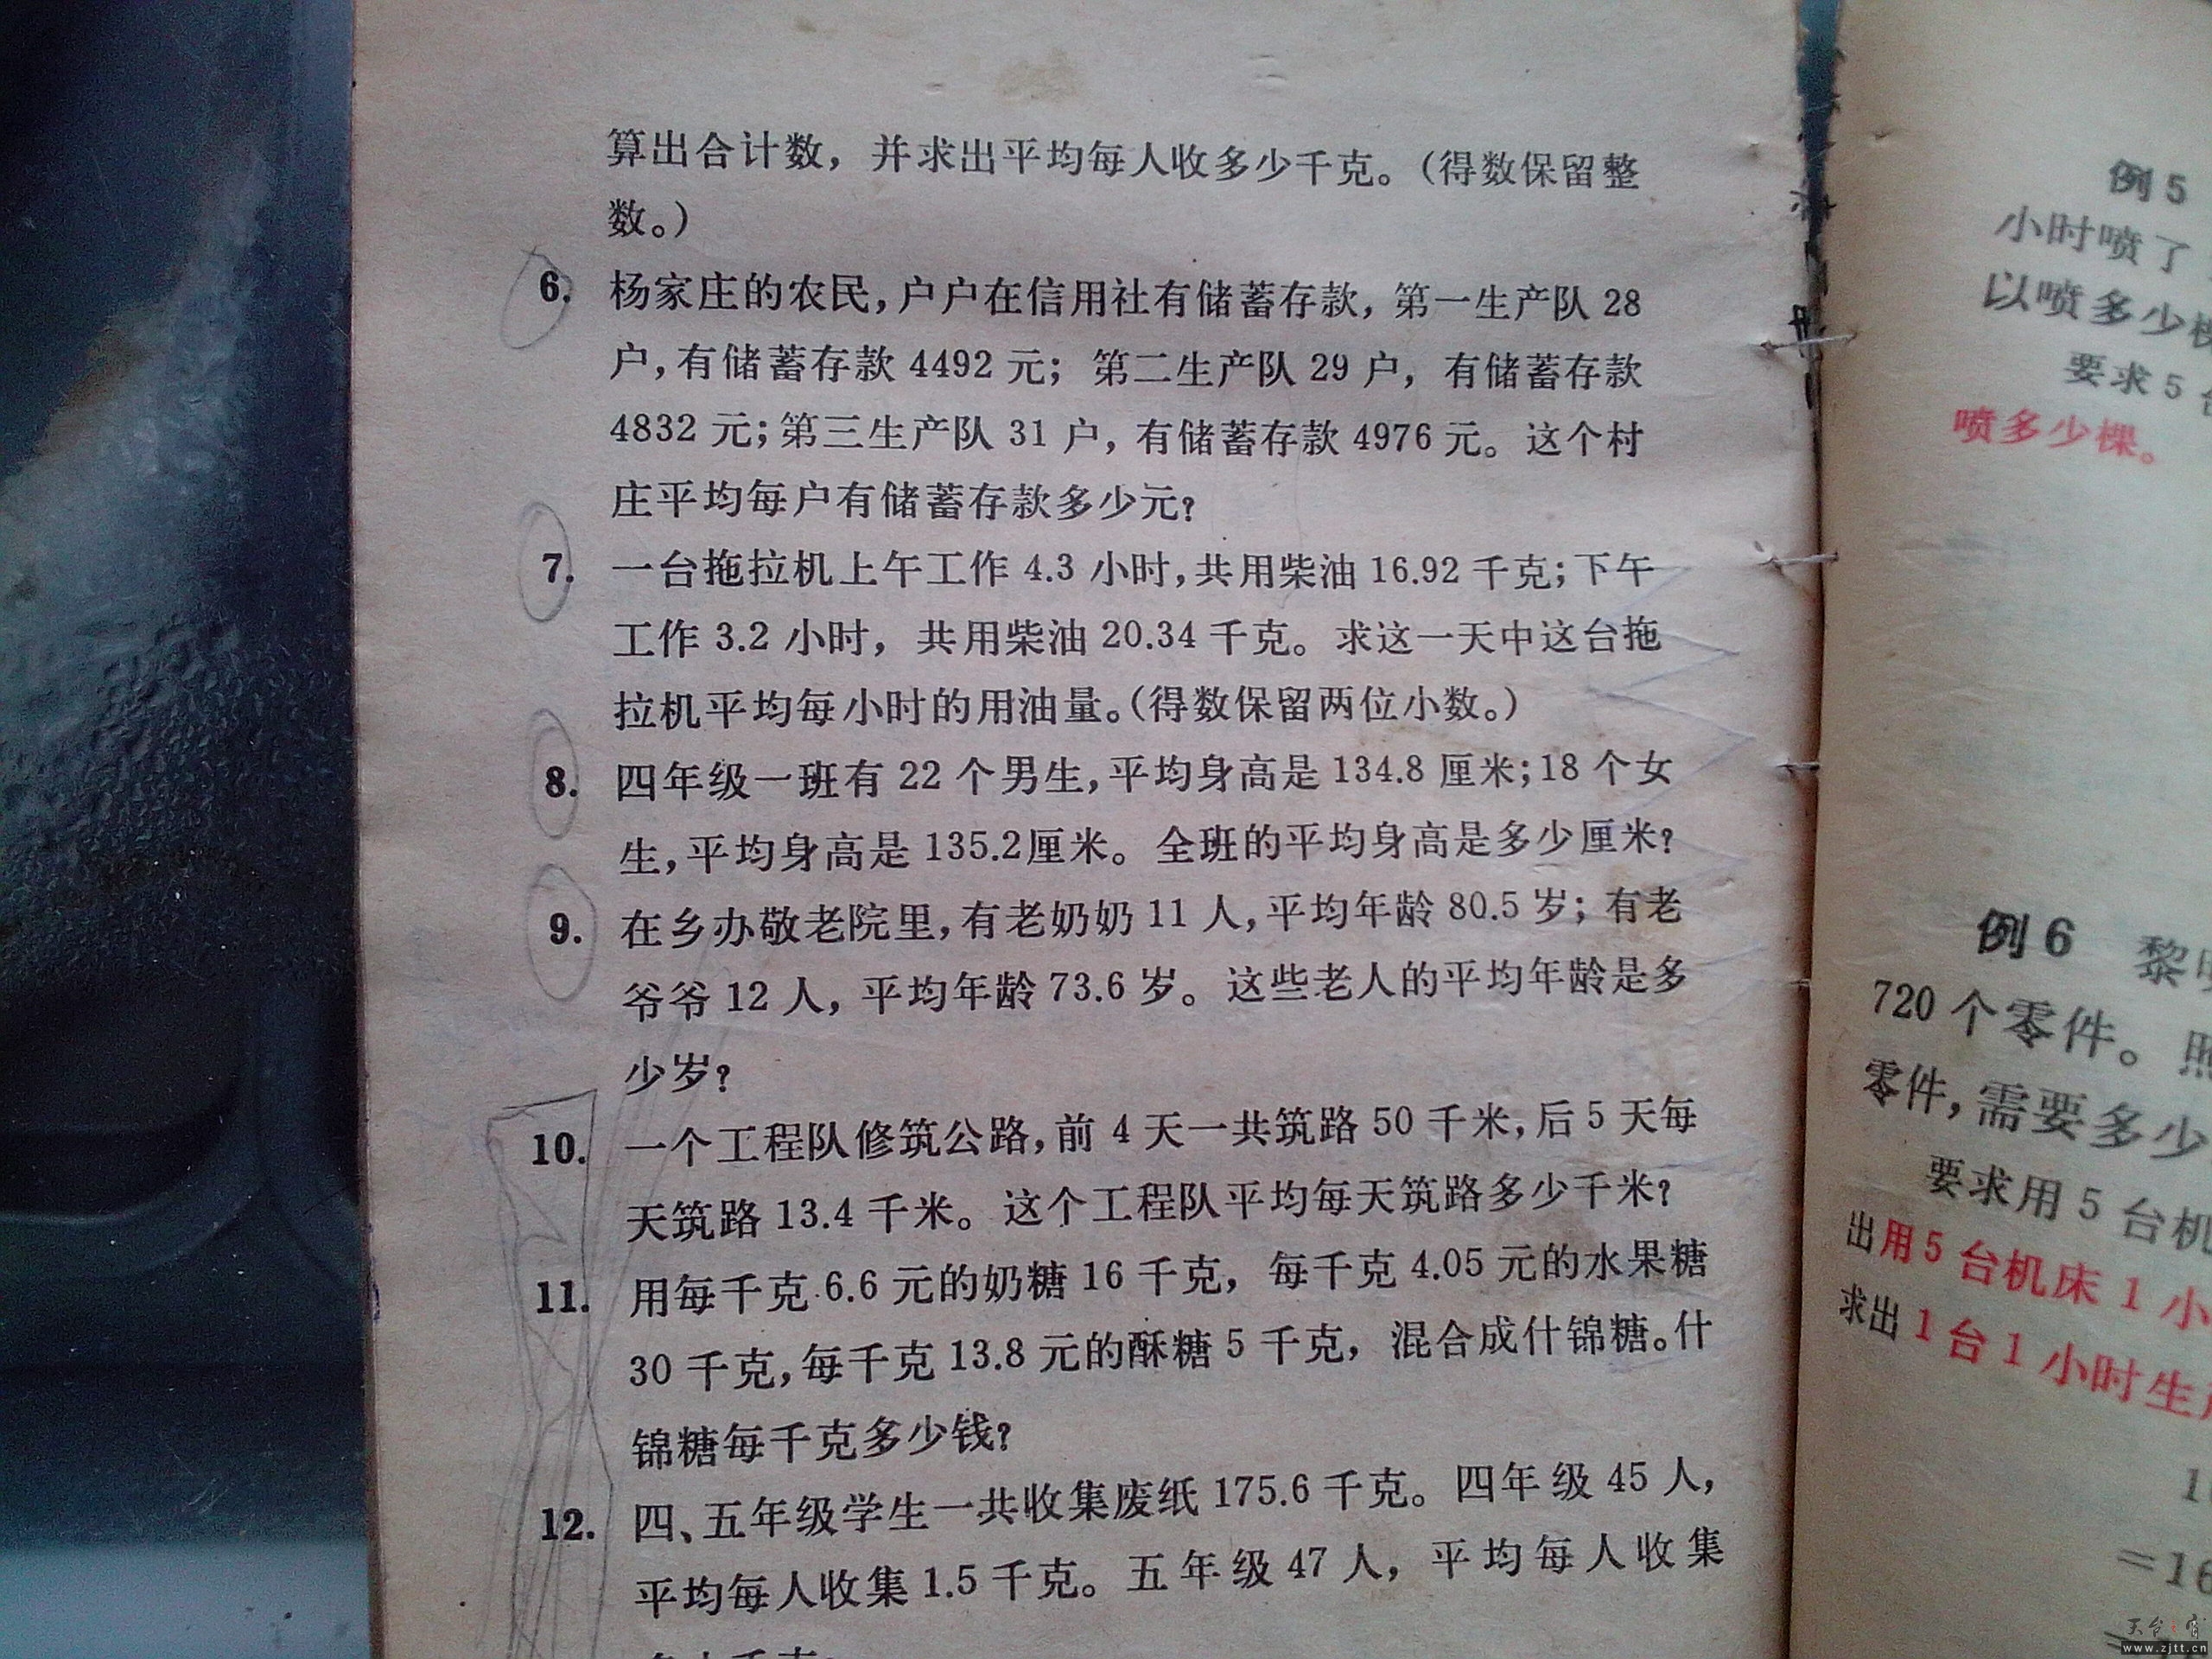 算出合计数，并求出平均每人收多少千克。（得数保留整
数。）
6. 杨家庄的农民，户户在信用社有储蓄存款，第一生产队 28
户，有储蓄存款 4492 元；第二生产队 29 户，有储蓄存款
4832 元；第三生产队 31 户，有储蓄存款 4976 元。这个村
庄平均每户有储蓄存款多少元？
7. 一台拖拉机上午工作 4.3 小时，共用柴油 16.92 千克；下午
工作 3.2 小时，共用柴油 20.34 千克。求这一天中这台拖
拉机平均每小时的用油量。（得数保留两位小数。）
8. 四年级一班有 22 个男生，平均身高是 134.8 厘米；18 个女
生，平均身高是 135.2厘米。全班的平均身高是多少厘米？
9. 在乡办敬老院里，有老奶奶 11 人，平均年龄 80.5 岁；有老
爷爷 12 人，平均年龄 73.6 岁。这些老人的平均年龄是多
少岁？
10. 一个工程队修筑公路，前 4 天一共筑路 50 千米，后 5 天每
天筑路 13.4 千米。这个工程队平均每天筑路多少千米？
11. 用每千克 6.6 元的奶糖 16 千克，每千克 4.05 元的水果糖
30 千克，每千克 13.8 元的酥糖 5 千克，混合成什锦糖。什
锦糖每千克多少钱？
12. 四、五年级学生一共收集废纸 175.6 千克。四年级 45 人，
平均每人收集 1.5 千克。五年级 47 人，平均每人收集
例 5
小时喷了
以喷多少
要求 5
喷多少棵。
例 6 黎
720 个零件。照
零件，需要多少
要求用 5 台机
出用 5 台机床 1 小
求出 1 台 1 小时生
=16
天台之窗
www.zjtt.cn